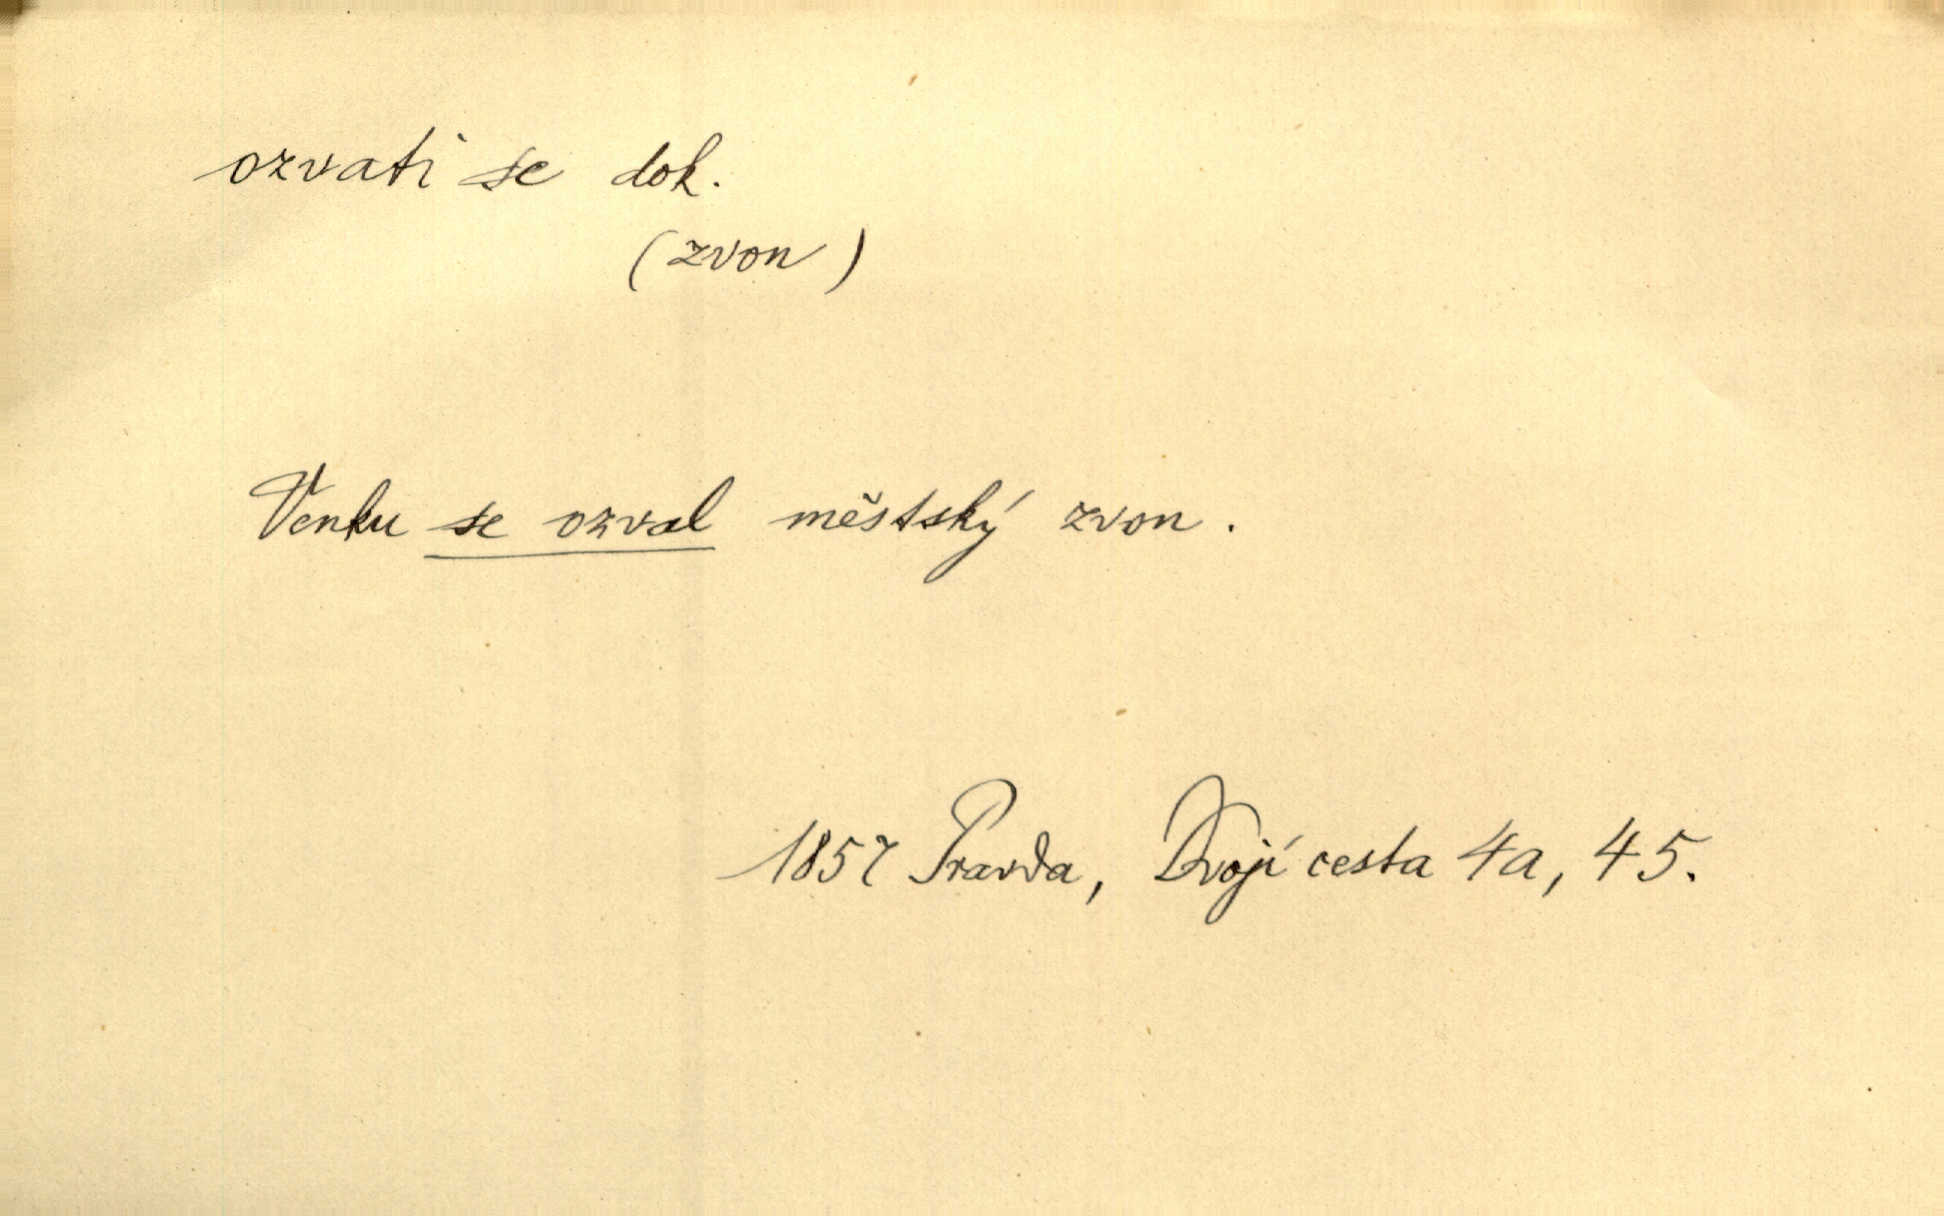 ozvati se dok.
(zvon)
Venku se ozval městský zvon.
1857 Pravda, Dvojí cesta 4a, 45.